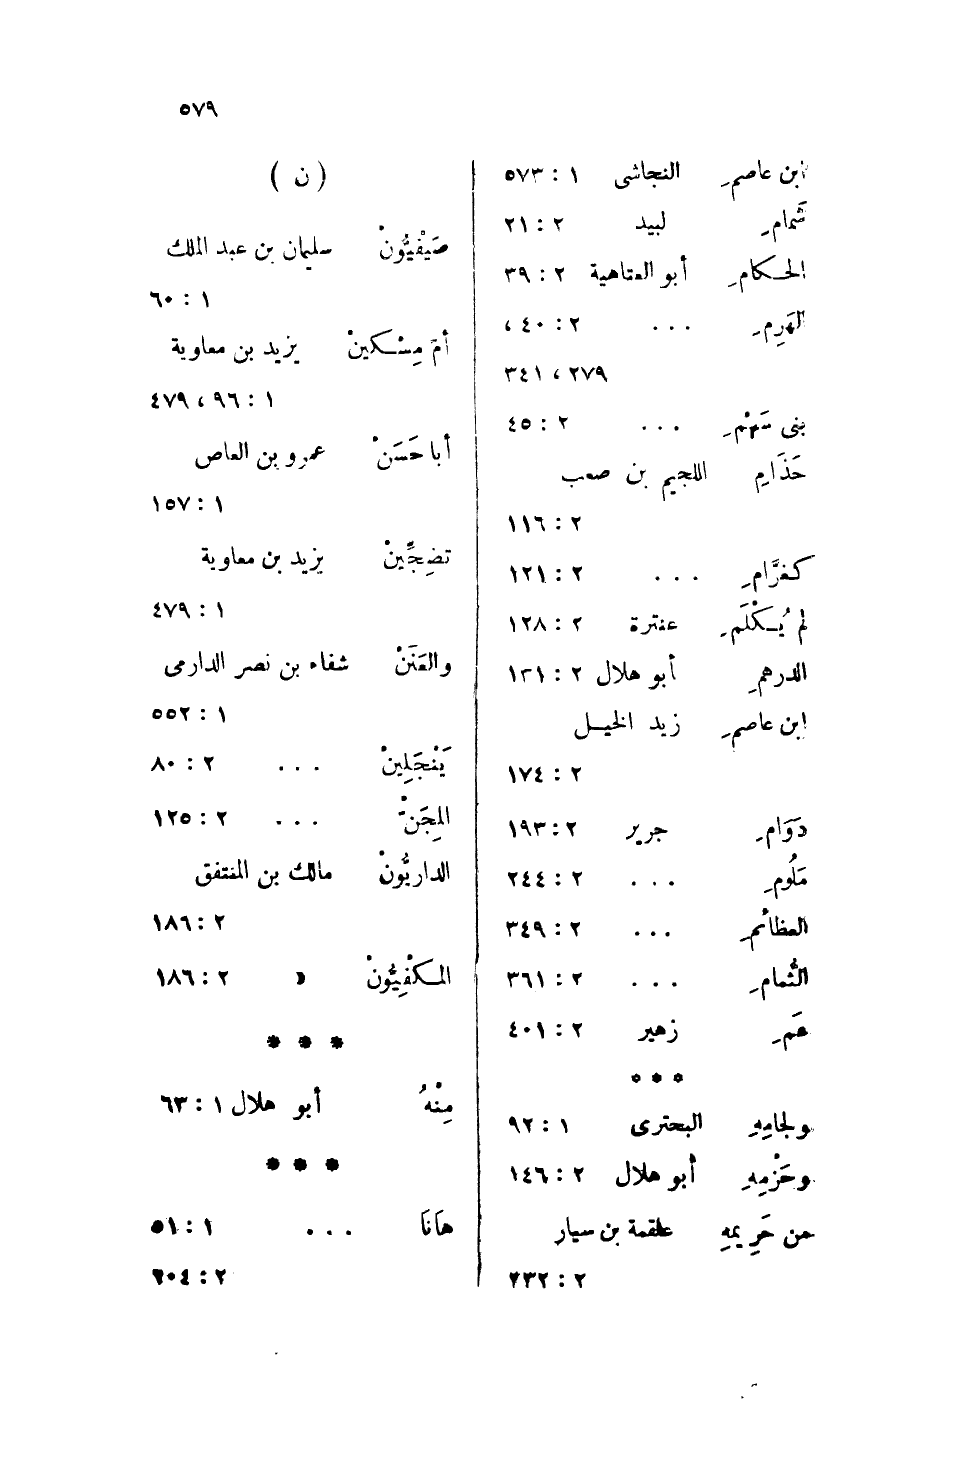 ٥٧٩
ابن عاصمِ النجاشى ١ : ٥٧٣
شَمامِ لبيد ٢ : ٢١
الحكامِ أبو العتاهية ٢ : ٣٩
الهَرِمِ ... ٢ : ٤٠ ،
٢٧٩ ، ٣٤١
بنى سَهْمِ ... ٢ : ٤٥
حَذَامِ اللجيم بن صعب
٢ : ١١٦
كغرَّامِ ... ٢ : ١٢١
لم يُكْلَمِ عنترة ٢ : ١٢٨
الدرهمِ أبو هلال ٢ : ١٣١
ابن عاصمِ زيد الخيل
٢ : ١٧٤
دَوَامِ جرير ٢ : ١٩٣
مَلُومِ ... ٢ : ٢٤٤
العظائمِ ... ٢ : ٣٤٩
الثُّمامِ ... ٢ : ٣٦١
عَمِ زهير ٢ : ٤٠١
* * *
ولجامِهِ البحترى ١ : ٩٢
وحَزْمِهِ أبو هلال ٢ : ١٤٦
من حَرِيمِهِ علقمة بن سيار
٢ : ٢٣٢
( ن )
صَيْفِيُّونْ سليمان بن عبد الملك
١ : ٦٠
أمّ مِسْكينْ يزيد بن معاوية
١ : ٩٦ ، ٤٧٩
أبا حَسَنْ عمرو بن العاص
١ : ١٥٧
تضِجِّينْ يزيد بن معاوية
١ : ٤٧٩
والعَنَنْ شفاء بن نصر الدارمى
١ : ٥٥٢
يَنْجَلِينْ ... ٢ : ٨٠
المِجَنّْ ... ٢ : ١٢٥
الداريُّونْ مالك بن المنتفق
٢ : ١٨٦
المكفِيُّونْ » ٢ : ١٨٦
* * *
مِنْهُ أبو هلال ١ : ٦٣
* * *
هَانَا ... ١ : ٥١
٢ : ٢٠٤